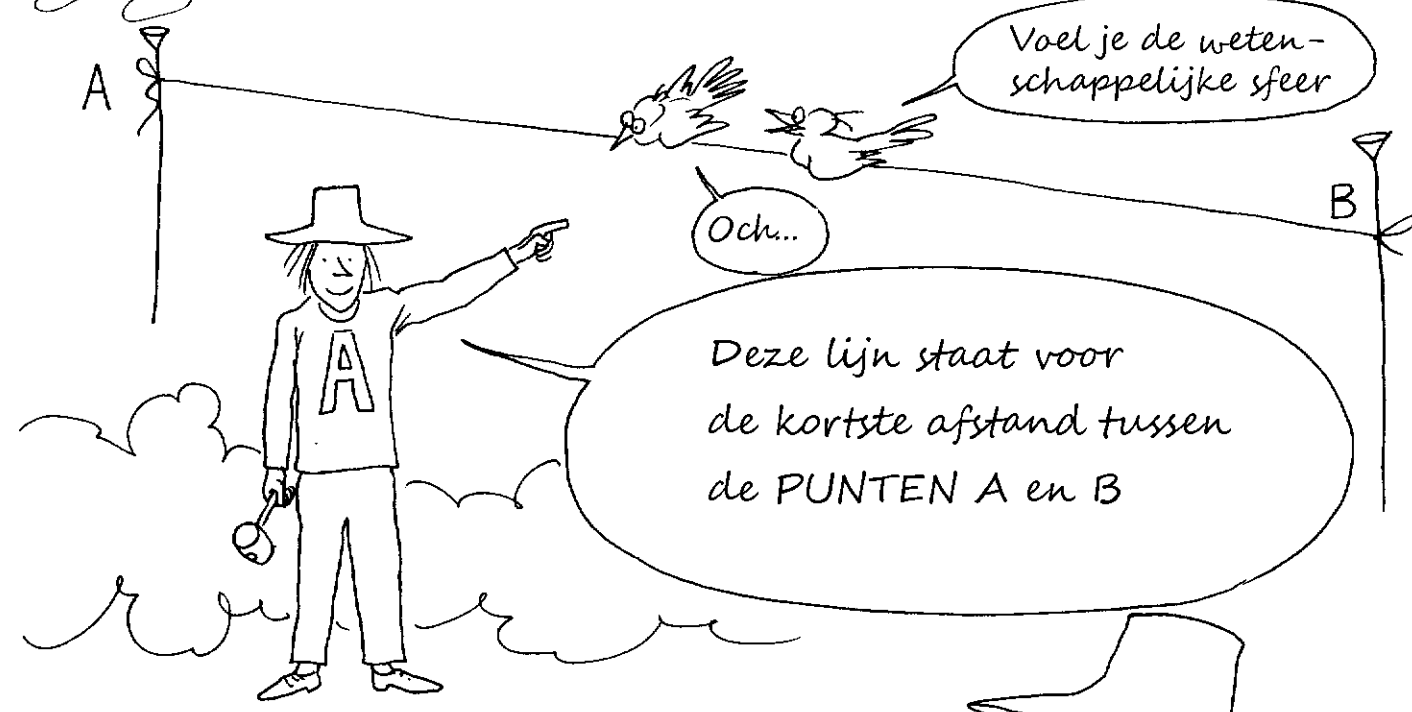 A
Voel je de weten-
schappelijke sfeer
B
Och...
A
Deze lijn staat voor
de kortste afstand tussen
de PUNTEN A en B